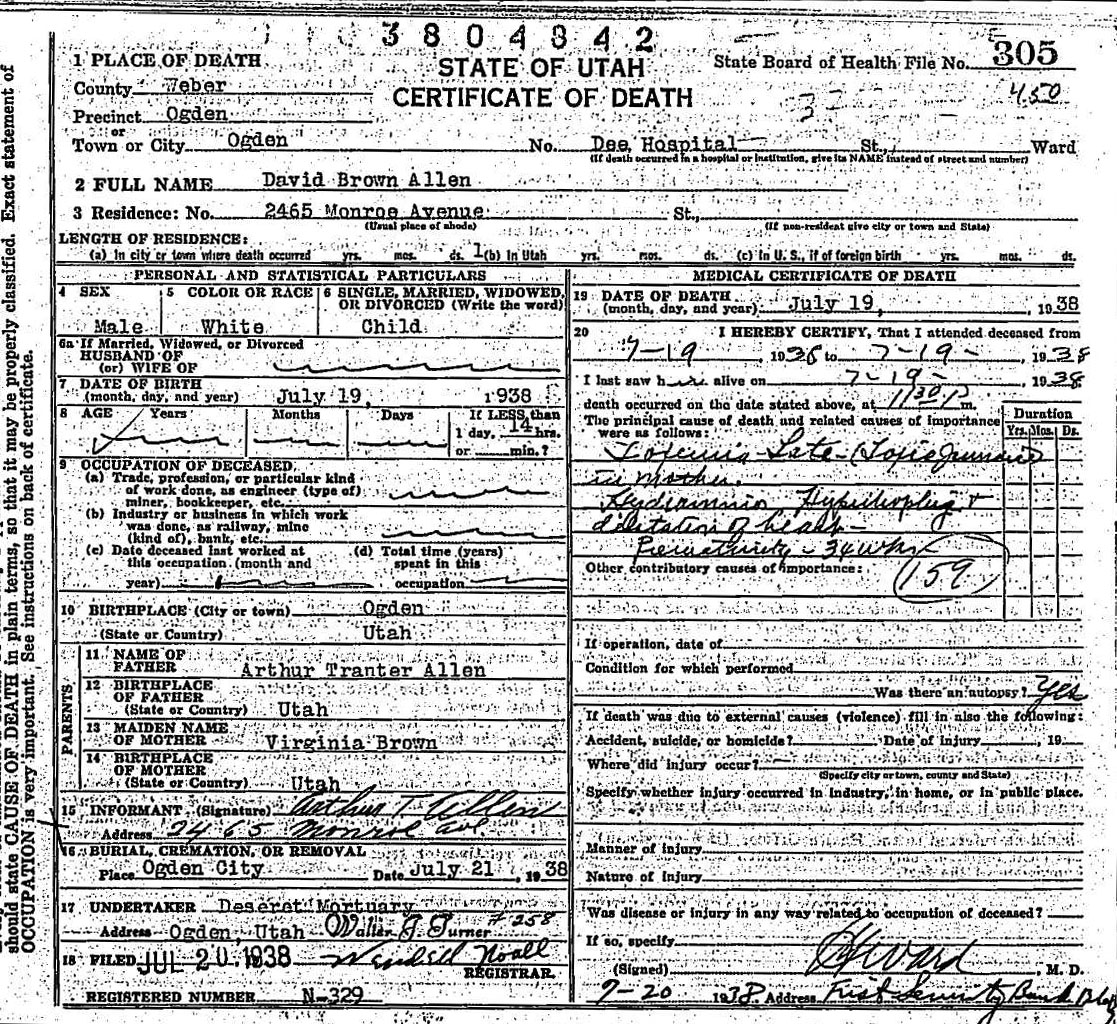 3804842
1 PLACE OF DEATH
STATE OF UTAH
State Board of Health File No. 305
County Weber
CERTIFICATE OF DEATH
450
Precinct Ogden
or
Town or City Ogden No. Dee Hospital St., Ward
(If death occurred in a hospital or institution, give its NAME instead of street and number)
2 FULL NAME David Brown Allen
3 Residence: No. 2465 Monroe Avenue St.,
(Usual place of abode) (If non-resident give city or town and State)
LENGTH OF RESIDENCE:
(a) In city or town where death occurred yrs. mos. ds. 1 (b) In Utah yrs. mos. ds. (c) In U. S., if of foreign birth yrs. mos. ds.
PERSONAL AND STATISTICAL PARTICULARS
4 SEX
Male
5 COLOR OR RACE
White
6 SINGLE, MARRIED, WIDOWED, OR DIVORCED (Write the word)
Child
6a If Married, Widowed, or Divorced
HUSBAND OF
(or) WIFE OF
7 DATE OF BIRTH
(month, day, and year) July 19, 1938
8 AGE Years Months Days If LESS than
1 day, 14 hrs.
or min.?
9 OCCUPATION OF DECEASED
(a) Trade, profession, or particular kind
of work done, as engineer (type of)
miner, bookkeeper, etc.
(b) Industry or business in which work
was done, as railway, mine
(kind of), bank, etc.
(c) Date deceased last worked at
this occupation (month and
year)
(d) Total time (years)
spent in this
occupation
10 BIRTHPLACE (City or town) Ogden
(State or Country) Utah
PARENTS
11 NAME OF
FATHER Arthur Tranter Allen
12 BIRTHPLACE
OF FATHER
(State or Country) Utah
13 MAIDEN NAME
OF MOTHER Virginia Brown
14 BIRTHPLACE
OF MOTHER
(State or Country) Utah
15 INFORMANT (Signature) Arthur T. Allen
Address 2465 Monroe Ave
16 BURIAL, CREMATION, OR REMOVAL
Place Ogden City Date July 21, 1938
17 UNDERTAKER Deseret Mortuary
Address Ogden, Utah Walter J. Turner #258
18 FILED JUL 20 1938 Wendell Noall
REGISTRAR.
REGISTERED NUMBER N-329
MEDICAL CERTIFICATE OF DEATH
19 DATE OF DEATH
(month, day, and year) July 19, 1938
20 I HEREBY CERTIFY, That I attended deceased from
7-19, 1938 to 7-19-, 1938
I last saw him alive on 7-19-, 1938
death occurred on the date stated above, at 11:30 P m.
The principal cause of death and related causes of importance
were as follows:
Duration
Yrs. Mos. Ds.
Toxemia Late-(Toxic
in mother.
Hydramnio Hypertrophy &
dilatation of heart-
Prematurity - 34 wks-
Other contributory causes of importance:
159
If operation, date of
Condition for which performed
Was there an autopsy? Yes
If death was due to external causes (violence) fill in also the following:
Accident, suicide, or homicide? Date of injury , 19
Where did injury occur?
(Specify city or town, county and State)
Specify whether injury occurred in industry, in home, or in public place.
Manner of injury
Nature of injury
Was disease or injury in any way related to occupation of deceased?
If so, specify
(Signed) Ward, M. D.
7-20 1938 Address First Security Bank Bldg
should state CAUSE OF DEATH in plain terms, so that it may be properly classified. Exact statement of
OCCUPATION is very important. See instructions on back of certificate.